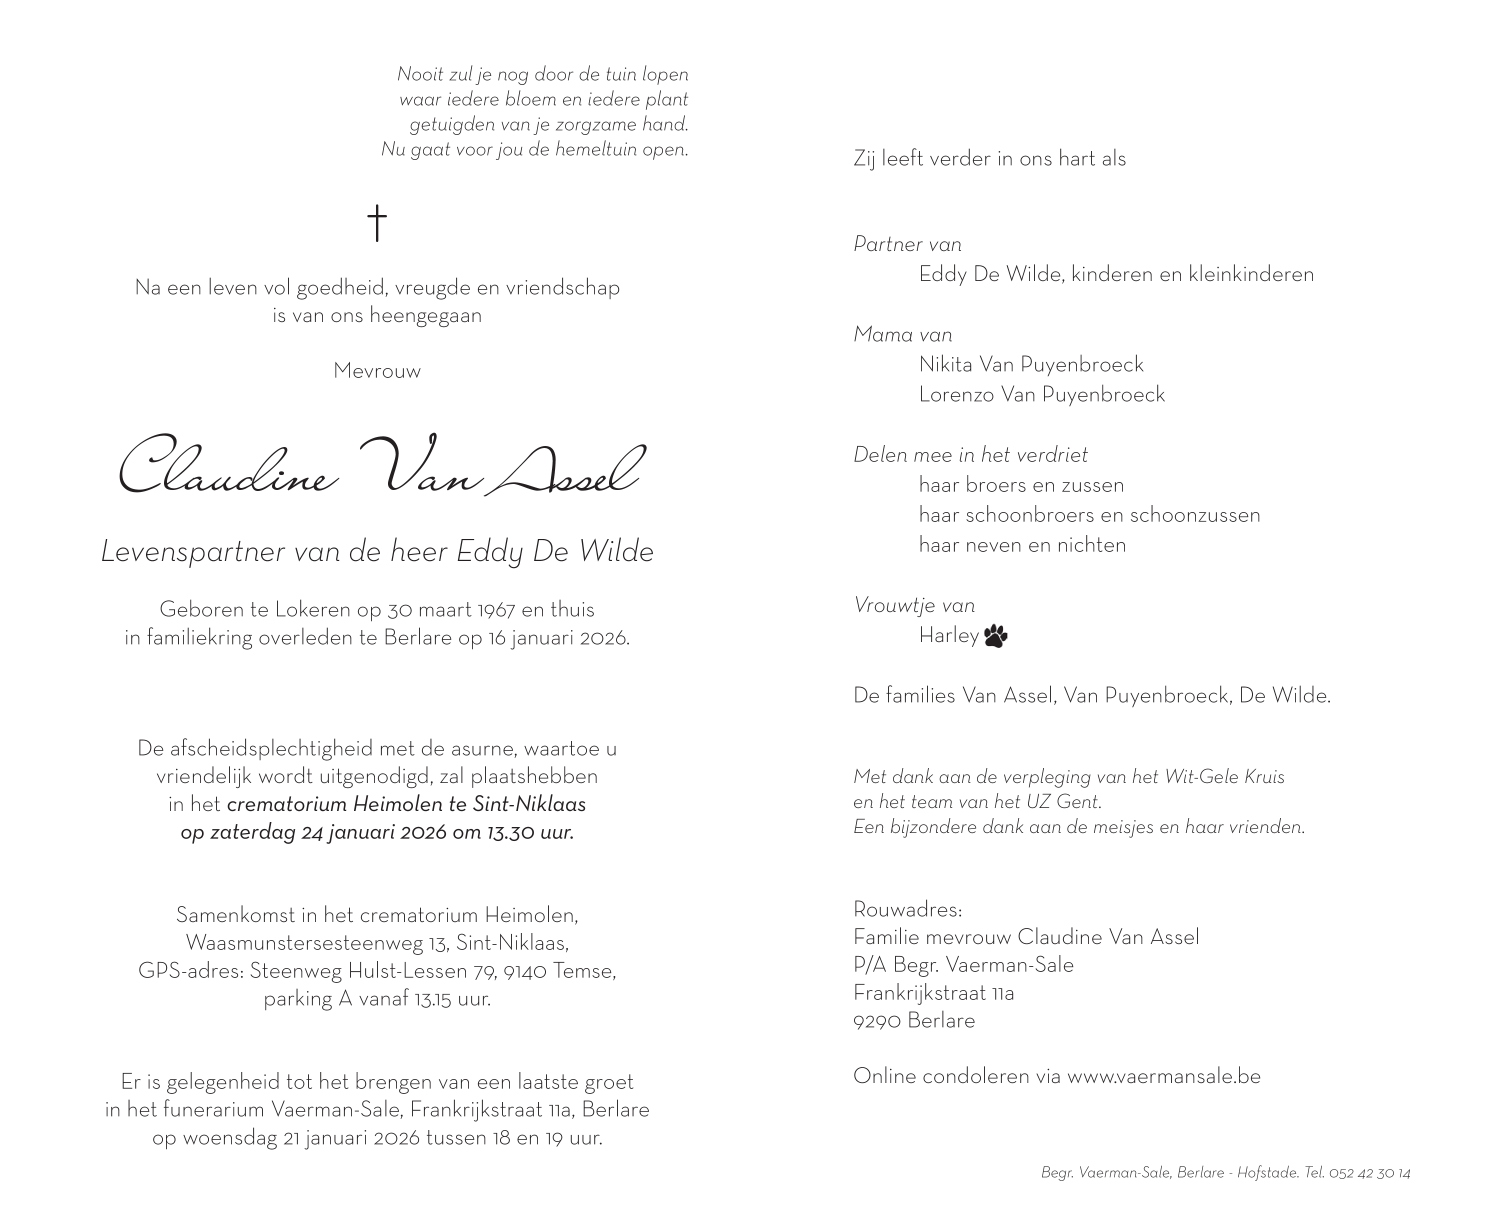 Nooit zul je nog door de tuin lopen
waar iedere bloem en iedere plant
getuigden van je zorgzame hand.
Nu gaat voor jou de hemeltuin open.
Na een leven vol goedheid, vreugde en vriendschap
is van ons heengegaan
Mevrouw
Claudine Van Assel
Levenspartner van de heer Eddy De Wilde
Geboren te Lokeren op 30 maart 1967 en thuis
in familiekring overleden te Berlare op 16 januari 2026.
De afscheidsplechtigheid met de asurne, waartoe u
vriendelijk wordt uitgenodigd, zal plaatshebben
in het crematorium Heimolen te Sint-Niklaas
op zaterdag 24 januari 2026 om 13.30 uur.
Samenkomst in het crematorium Heimolen,
Waasmunstersesteenweg 13, Sint-Niklaas,
GPS-adres: Steenweg Hulst-Lessen 79, 9140 Temse,
parking A vanaf 13.15 uur.
Er is gelegenheid tot het brengen van een laatste groet
in het funerarium Vaerman-Sale, Frankrijkstraat 11a, Berlare
op woensdag 21 januari 2026 tussen 18 en 19 uur.
Zij leeft verder in ons hart als
Partner van
Eddy De Wilde, kinderen en kleinkinderen
Mama van
Nikita Van Puyenbroeck
Lorenzo Van Puyenbroeck
Delen mee in het verdriet
haar broers en zussen
haar schoonbroers en schoonzussen
haar neven en nichten
Vrouwtje van
Harley
De families Van Assel, Van Puyenbroeck, De Wilde.
Met dank aan de verpleging van het Wit-Gele Kruis
en het team van het UZ Gent.
Een bijzondere dank aan de meisjes en haar vrienden.
Rouwadres:
Familie mevrouw Claudine Van Assel
P/A Begr. Vaerman-Sale
Frankrijkstraat 11a
9290 Berlare
Online condoleren via www.vaermansale.be
Begr. Vaerman-Sale, Berlare - Hofstade. Tel. 052 42 30 14